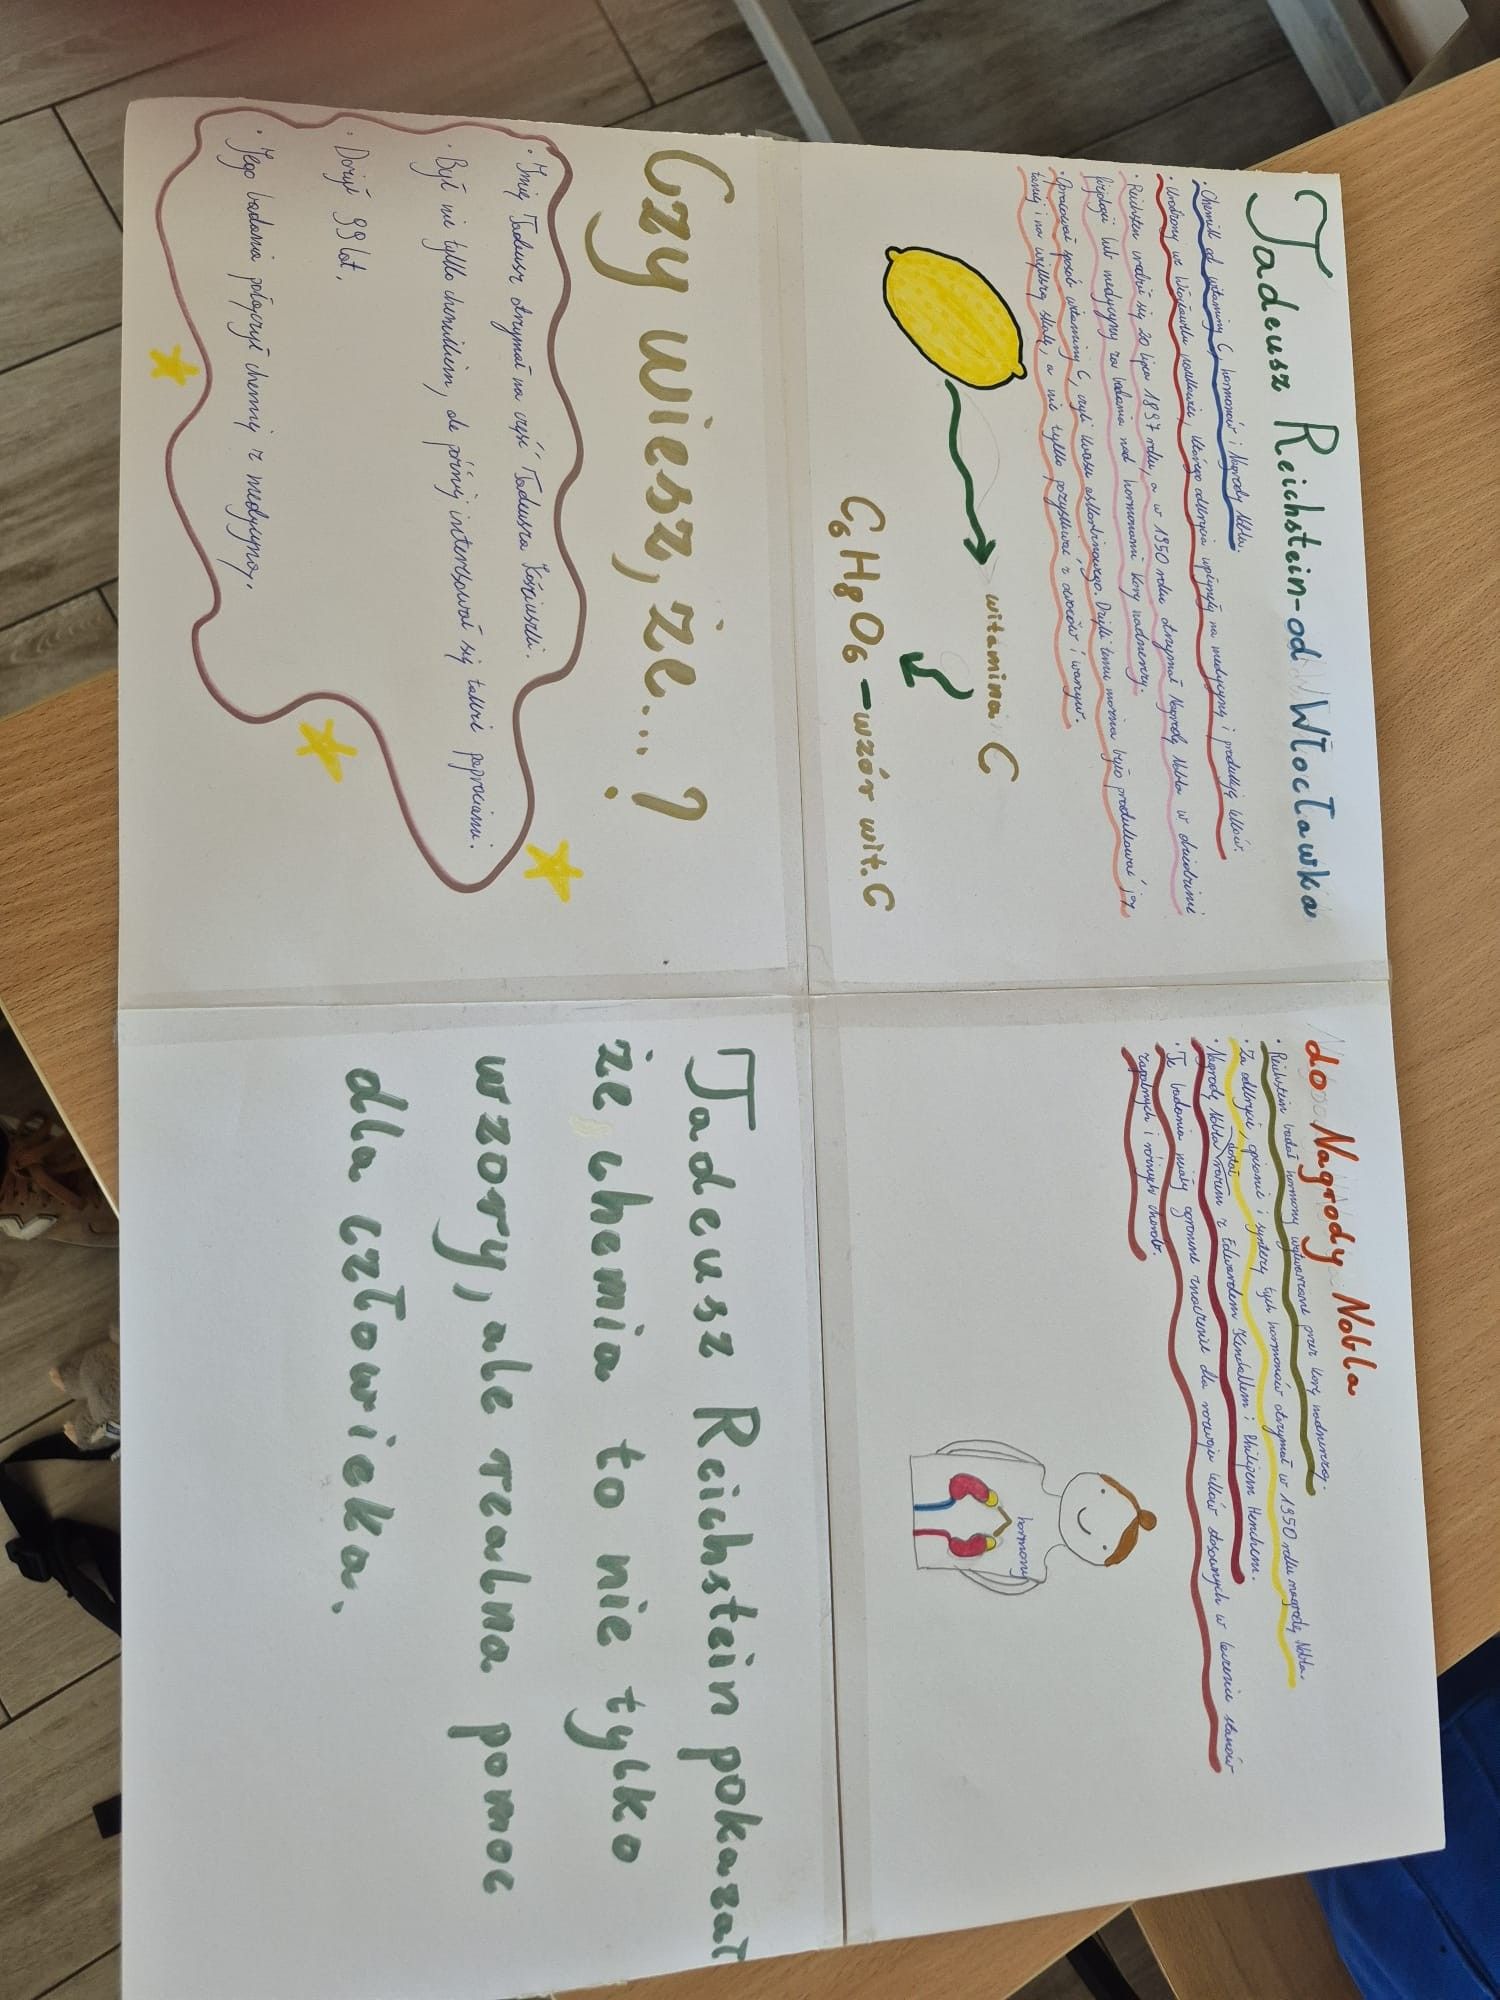 Tadeusz Reichstein-od Włocławka
• Chemik od witaminy C, hormonów i Nagrody Nobla.
• Urodzony we Włocławku naukowiec, którego odkrycia wpłynęły na medycynę i produkcję leków.
• Reichstein urodził się 20 lipca 1897 roku, a w 1950 roku otrzymał Nagrodę Nobla w dziedzinie
fizjologii lub medycyny za badania nad hormonami kory nadnerczy.
• Opracował sposób witaminy C, czyli kwasu askorbinowego. Dzięki temu można było produkować ją
taniej i na większą skalę, a nie tylko pozyskiwać z owoców i warzyw.
witamina C
C6H8O6 - wzór wit. C
do Nagrody Nobla
• Reichstein badał hormony wytwarzane przez korę nadnerczy.
• Za odkrycie, opisanie i syntezę tych hormonów otrzymał w 1950 roku nagrodę Nobla.
dostał
• Nagrodę Nobla razem z Edwardem Kendallem i Philipem Henchem.
• Te badania miały ogromne znaczenie dla rozwoju leków stosowanych w leczeniu stanów
zapalnych i różnych chorób.
hormony
Czy wiesz, że...?
• Imię Tadeusz otrzymał na cześć Tadeusza Kościuszki.
• Był nie tylko chemikiem, ale później interesował się także paprociami.
• Dożył 99 lat.
• Jego badania połączył chemię z medycyną.
Tadeusz Reichstein pokazał
że, chemia to nie tylko
wzory, ale realna pomoc
dla człowieka.